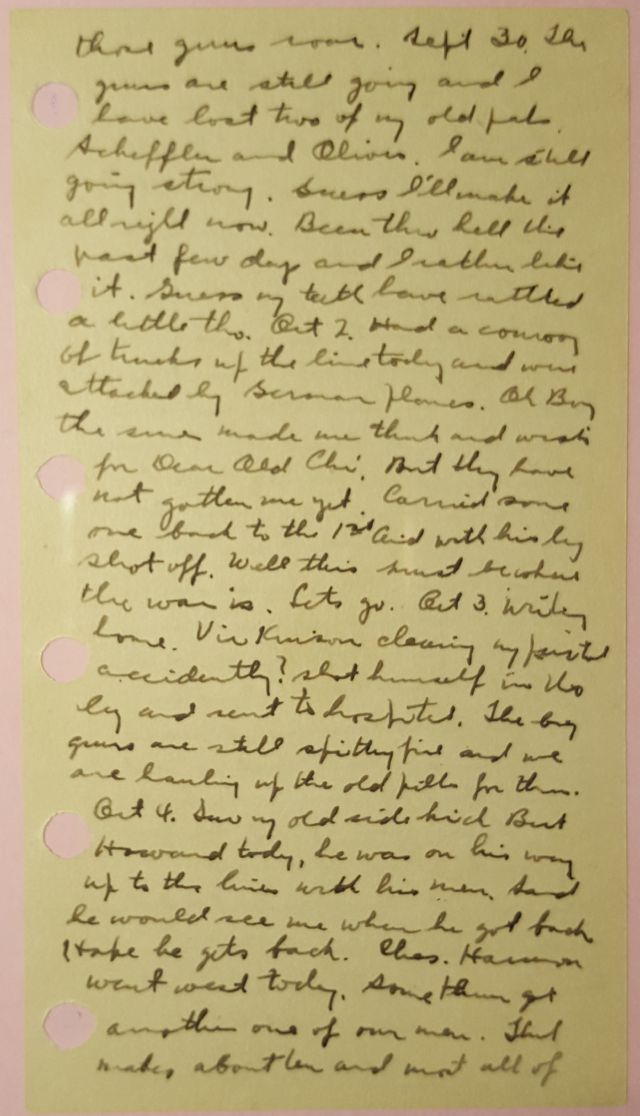 those guns roar. Sept 30. The
guns are still going and I
have lost two of my old pals.
Scheffler and Oliver. I am still
going strong. Guess I'll make it
all right now. Been thru hell this
past few days and I rather like
it. Guess my teeth have rattled
a little tho. Oct 2. Had a convoy
of trucks up the line today and were
attacked by German planes. Oh Boy
the made me think and wish
for Dear Old Chi. But they have
not gotten me yet. Carried some
one back to the 1st Aid with his leg
shot off. Well this must be where
the war is. Lets go. Oct 3. Writing
home. Vic cleaning my pistol
accidently? shot himself in the
leg and sent to hospital. The big
guns are still spitting fire and we
are hauling up the old pills for them.
Oct 4. Saw my old side kick Bert
Howard today, he was on his way
up to the lines with his men. Said
he would see me when he got back
I hope he gets back. Chas. Harmon
went west today. Something got
another one of our men. That
makes about ten and most all of